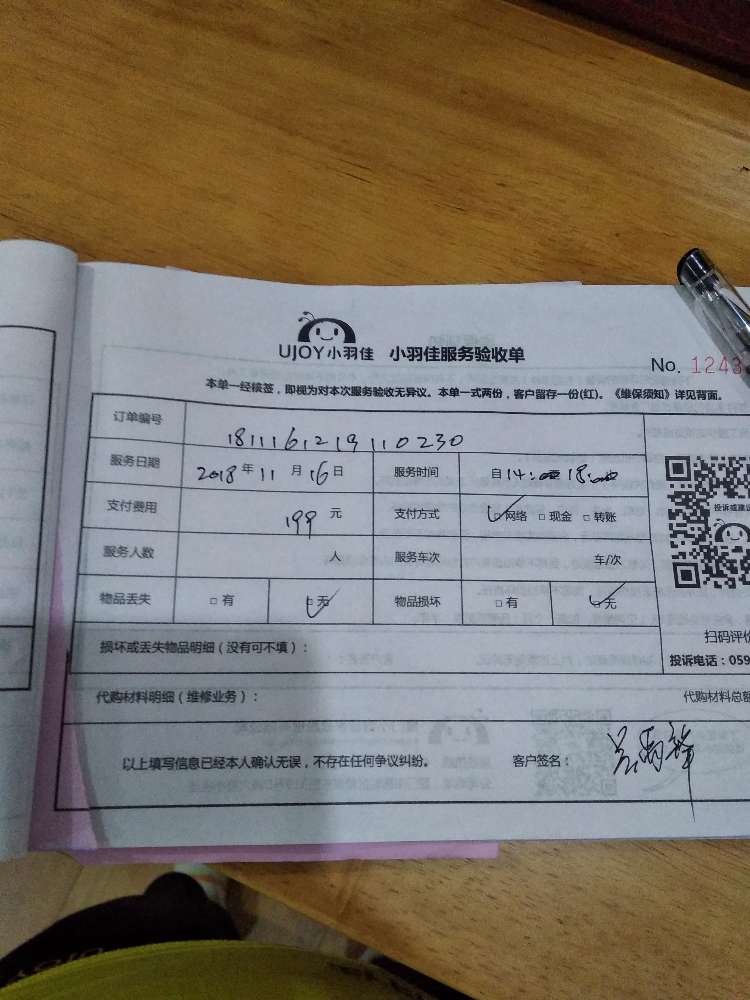 UJOY小羽佳 小羽佳服务验收单
No. 1243
本单一经核签，即视为对本次服务验收无异议。本单一式两份，客户留存一份(红)。《维保须知》详见背面。
订单编号 1811161219110230
服务日期 2018年11月16日 服务时间 自14:00 18:00
支付费用 199元 支付方式 ☑网络 □现金 □转账
服务人数 人 服务车次 车/次
物品丢失 □有 ☑无 物品损坏 □有 ☑无
投诉或建议
损坏或丢失物品明细（没有可不填）：
扫码评价
投诉电话：059
代购材料明细（维修业务）： 代购材料总额
以上填写信息已经本人确认无误，不存在任何争议纠纷。 客户签名：